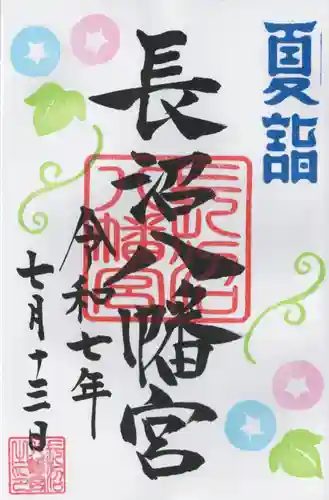 夏詣
長沼八幡宮
令和七年
七月十三日
長沼八幡宮